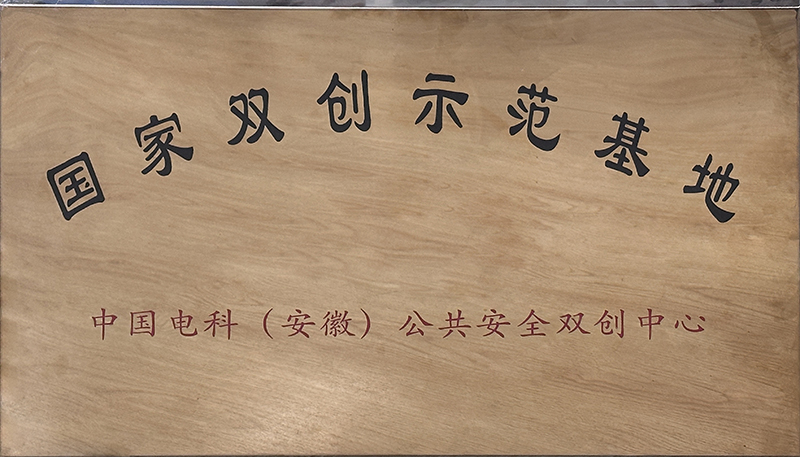 国家双创示范基地
中国电科（安徽）公共安全双创中心